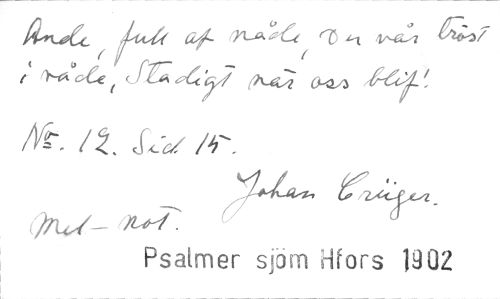 Ande, full af nåde, Du vår tröst
i våde, Stadigt när oss blif!
No. 12. Sid. 15.
Johan Crüger.
Mel-not.
Psalmer sjöm Hfors 1902